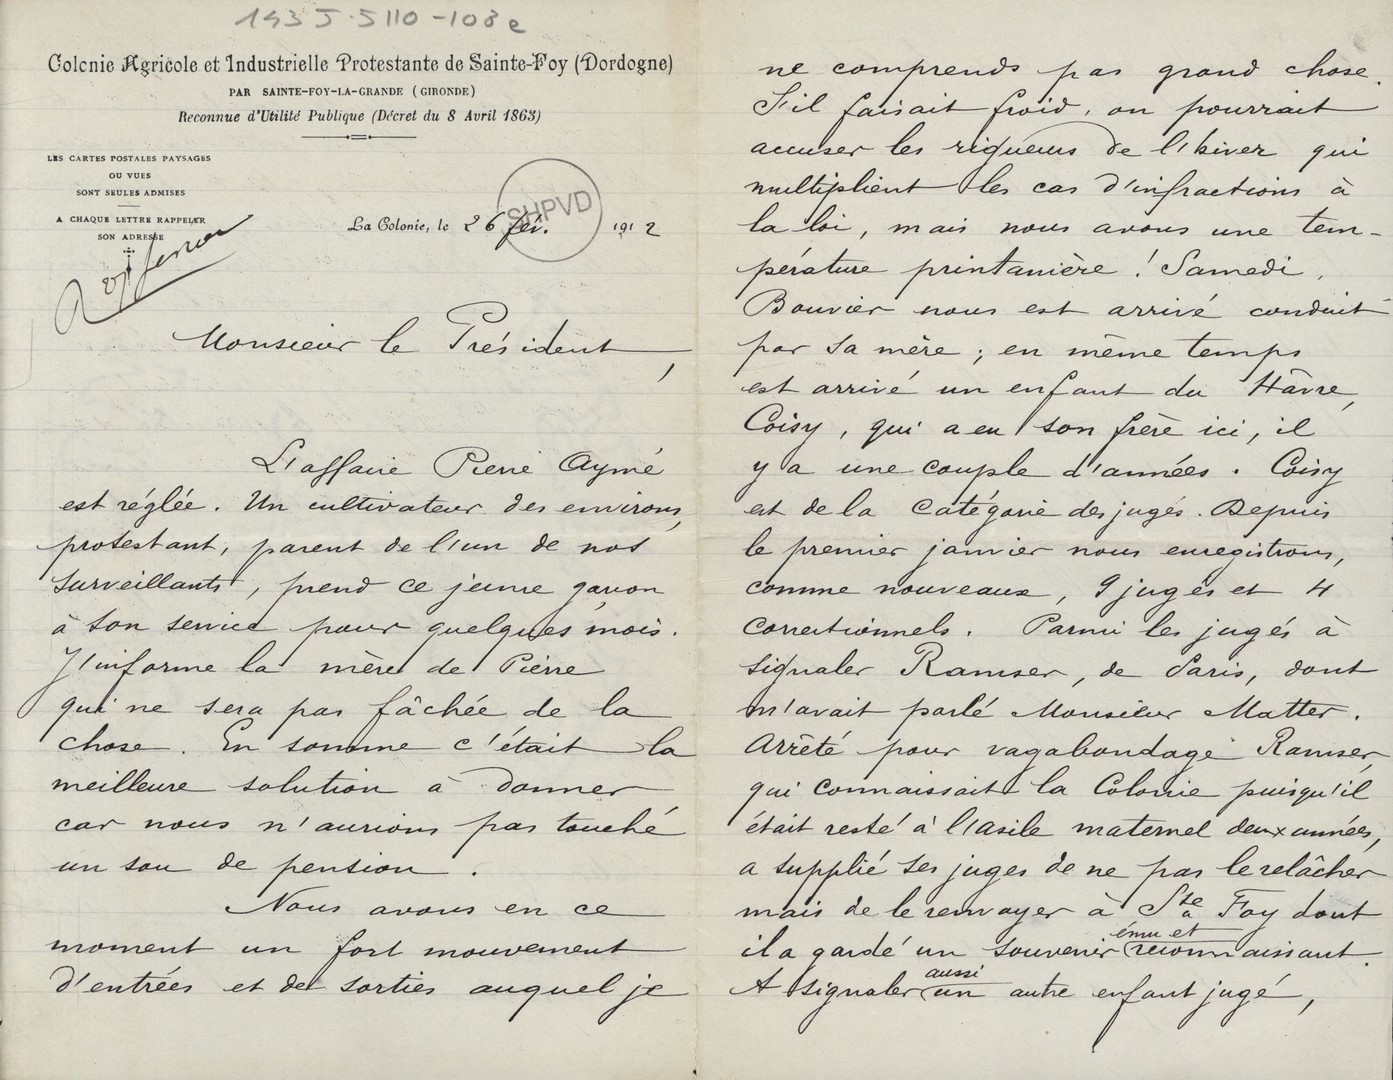 143 J 5110-108e
Colonie Agricole et Industrielle Protestante de Sainte-Foy (Dordogne)
PAR SAINTE-FOY-LA-GRANDE (GIRONDE)
Reconnue d'Utilité Publique (Décret du 8 Avril 1863)
LES CARTES POSTALES PAYSAGES
OU VUES
SONT SEULES ADMISES
A CHAQUE LETTRE RAPPELER
SON ADRESSE
SHPVD
La Colonie, le 26 fév. 1912
R 27 fevrier
Monsieur le Président,
L'affaire Pierre Aymé
est réglée. Un cultivateur des environs,
protestant, parent de l'un de nos
surveillants, prend ce jeune garçon
à son service pour quelques mois.
J'informe la mère de Pierre
qui ne sera pas fâchée de la
chose. En somme c'était la
meilleure solution à donner
car nous n'aurions pas touché
un sou de pension.
Nous avons en ce
moment un fort mouvement
d'entrées et de sorties auquel je
ne comprends pas grand chose.
S'il faisait froid, on pourrait
accuser les rigueurs de l'hiver qui
multiplient les cas d'infractions à
la loi, mais nous avons une tem-
pérature printanière ! Samedi,
Bouvier nous est arrivé conduit
par sa mère ; en même temps
est arrivé un enfant du Hâvre,
Coisy, qui a eu son frère ici, il
y a une couple d'années. Coisy
est de la catégorie des jugés. Depuis
le premier janvier nous enregistrons,
comme nouveaux, 9 jugés et 4
correctionnels. Parmi les jugés à
signaler Ramser, de Paris, dont
m'avait parlé Monsieur Matter.
Arrêté pour vagabondage Ramser,
qui connaissait la Colonie puisqu'il
était resté à l'asile maternel deux années,
a supplié ses juges de ne pas le relâcher
mais de le renvoyer à Ste Foy dont
il a gardé un souvenir ému et reconnaissant.
A signaler aussi un autre enfant jugé,